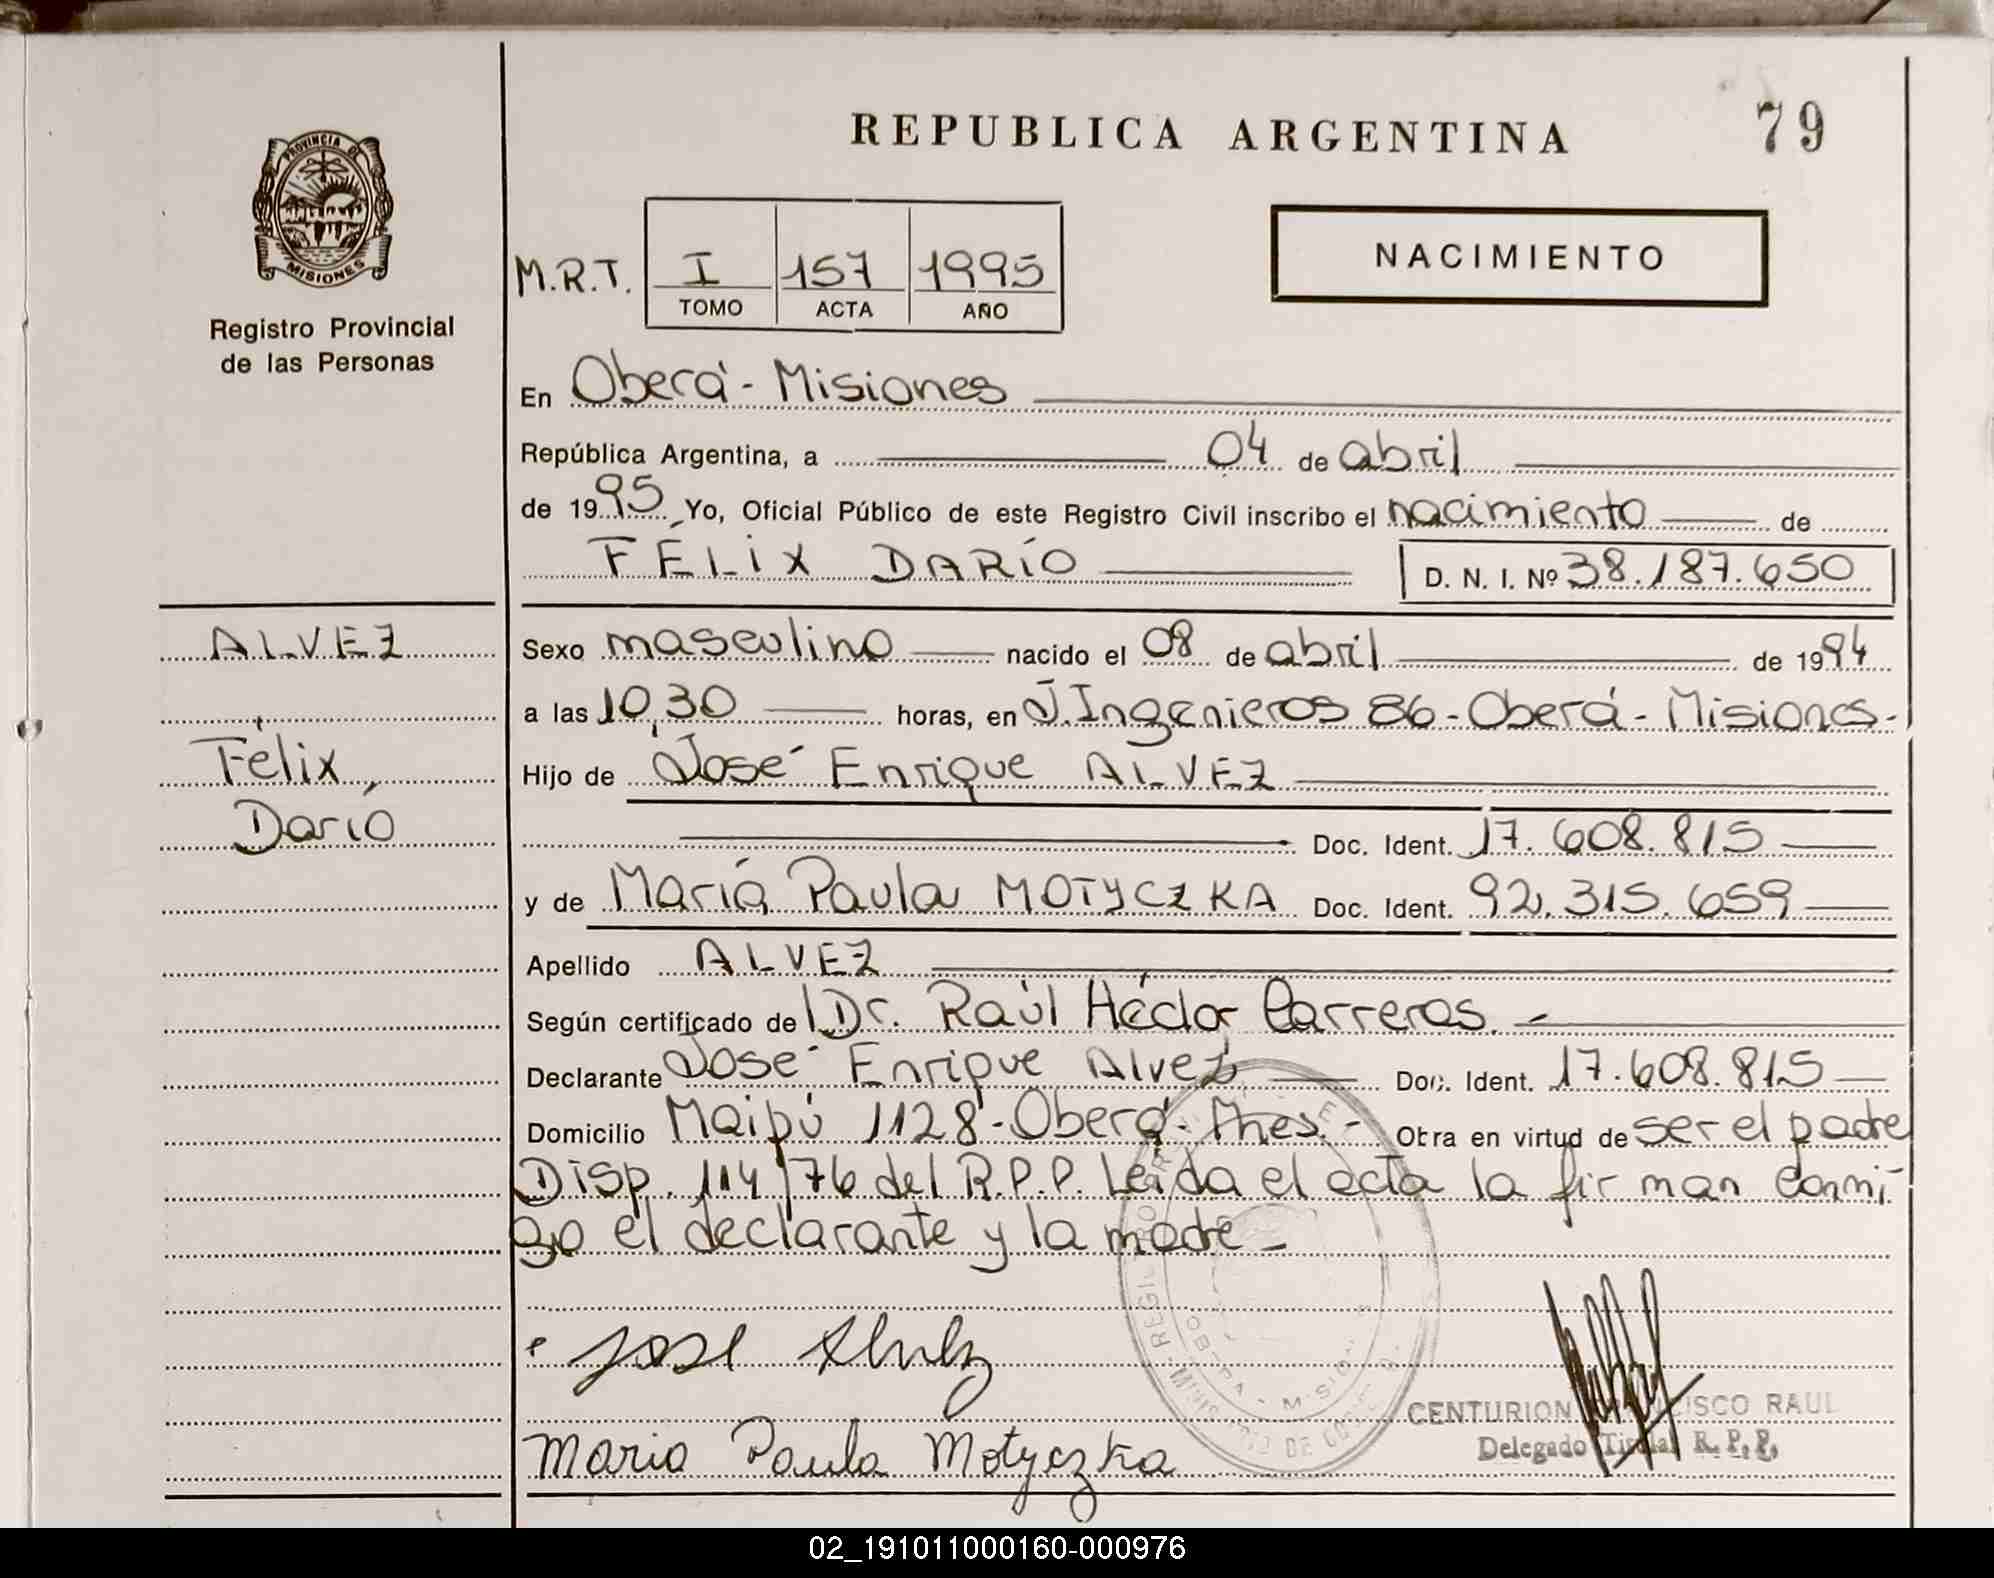 REPUBLICA ARGENTINA
79
PROVINCIA DE
MISIONES
Registro Provincial
de las Personas
NACIMIENTO
M.R.T. I 157 1995
TOMO ACTA AÑO
En Oberá - Misiones
República Argentina, a 04 de abril
de 1995 Yo, Oficial Público de este Registro Civil inscribo el nacimiento de
FÉLIX DARÍO D. N. I. Nº 38.187.650
ALVEZ
Félix
Darío
Sexo masculino nacido el 08 de abril de 1994
a las 10,30 horas, en J. Ingenieros 86 - Oberá - Misiones -
Hijo de José Enrique ALVEZ
Doc. Ident. 17.608.815
y de María Paula MOTYCZKA Doc. Ident. 92.315.659
Apellido ALVEZ
Según certificado de Dr. Raúl Héctor Carreras.
Declarante José Enrique Alvez Doc. Ident. 17.608.815
Domicilio Maipú 1128 - Oberá - Mnes. - Obra en virtud de ser el padre
Disp. 114/76 del R.P.P. Leída el acta la firman conmi
go el declarante y la madre -
Jose Alvez
Maria Paula Motyczka
OBERA - MISIONES
MINISTERIO DE
CENTURION RAUL
Delegado Titular R. P. P.
02_191011000160-000976